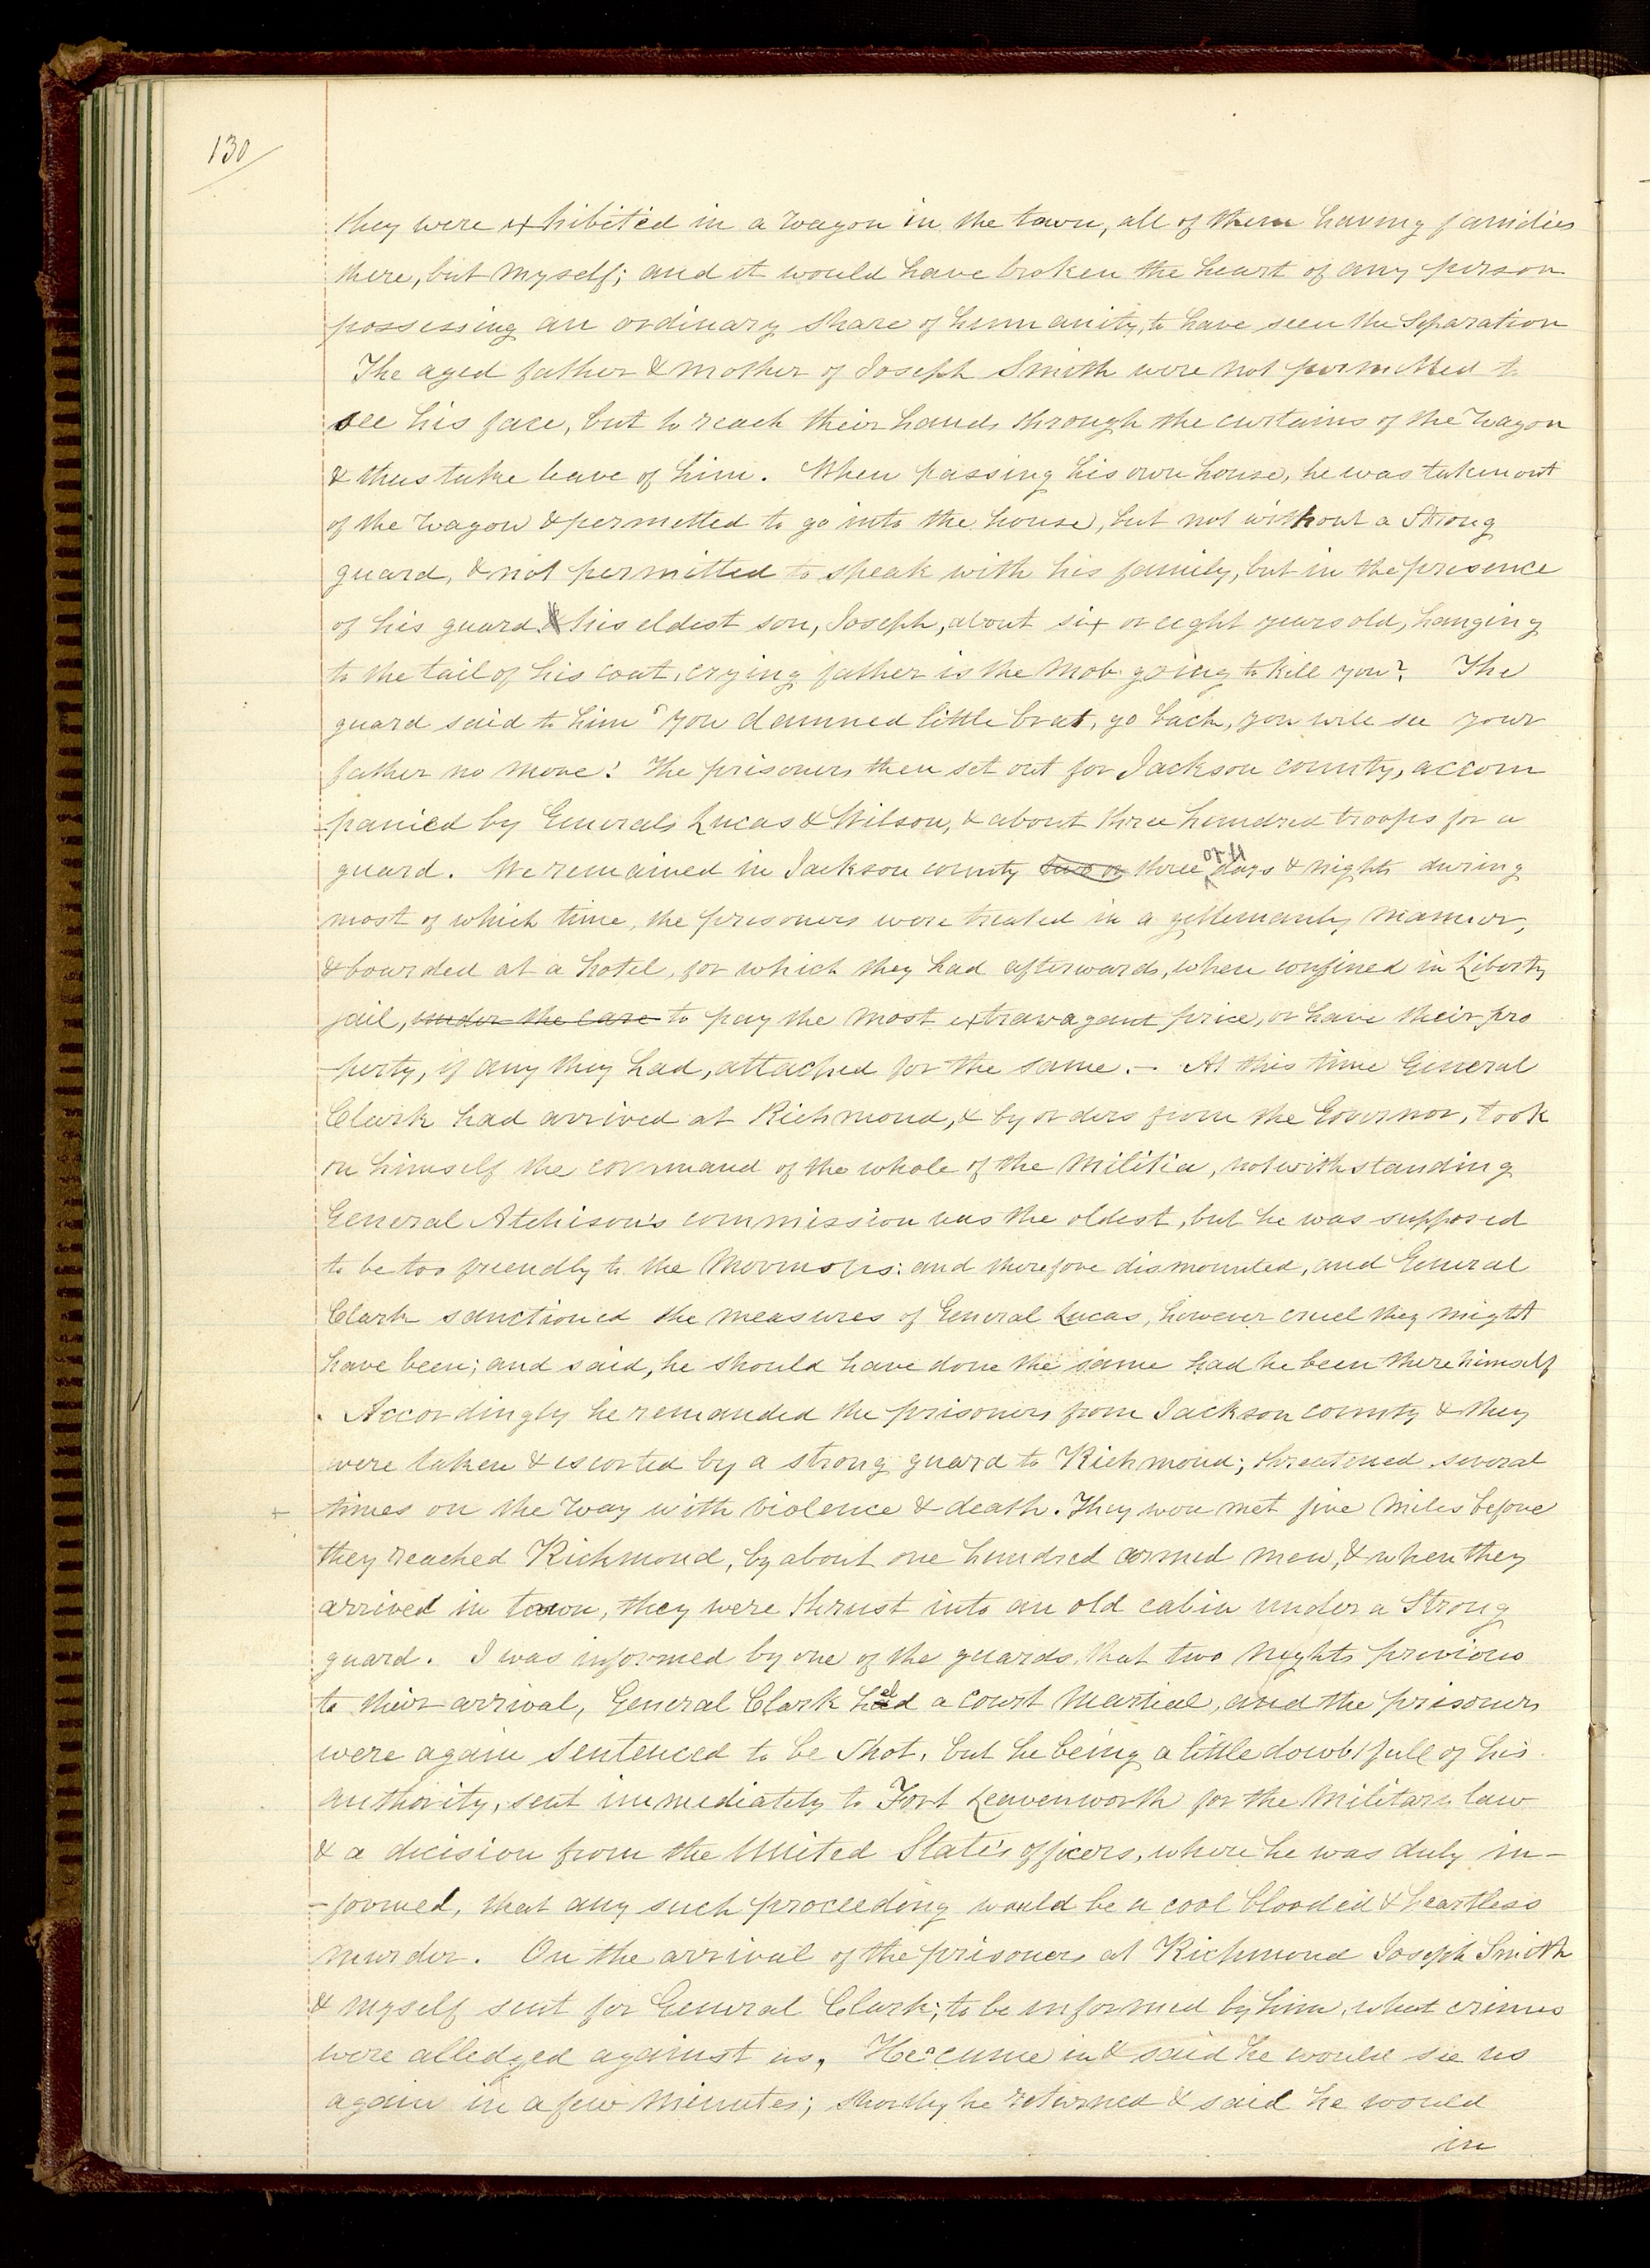 130
they were exhibited in a wagon in the town, all of them having families
there, but myself; and it would have broken the heart of any person
possessing an ordinary share of humanity, to have seen the separation
The aged father & mother of Joseph Smith were not permitted to
see his face, but to reach their hands through the curtains of the wagon
& thus take leave of him. When passing his own house, he was taken out
of the wagon & permitted to go into the house, but not without a strong
guard, & not permitted to speak with his family, but in the presence
of his guard & his eldest son, Joseph, about six or eight years old, hanging
to the tail of his coat, crying father is the mob going to kill you? The
guard said to him "you damned little brat, go back, you will see your
father no more! The prisoners then set out for Jackson county, accom
-panied by Generals Lucas & Wilson, & about three hundred troops for a
guard. We remained in Jackson county two or three or 4 days & nights during
most of which time, the prisoners were treated in a gentlemanly manner,
& boarded at a hotel, for which they had afterwards, when confined in Liberty
jail, under the care to pay the most extravagant price, or have their pro
-perty, if any they had, attached for the same. - At this time General
Clark had arrived at Richmond, & by orders from the Governor, took
on himself the command of the whole of the militia, notwithstanding
General Atchison's commission was the oldest, but he was supposed
to be too friendly to the Mormons: and therefore dismounted, and General
Clark sanctioned the measures of General Lucas, however cruel they might
have been; and said, he should have done the same had he been there himself
. Accordingly he remanded the prisoners from Jackson county & they
were taken & escorted by a strong guard to Richmond; threatened several
+ times on the way with violence & death. They were met five miles before
they reached Richmond, by about one hundred armed men, & when they
arrived in town, they were thrust into an old cabin under a strong
guard. I was informed by one of the guards, that two nights previous
to their arrival, General Clark held a court martial, and the prisoners
were again sentenced to be shot, but he being a little doubtfull of his
authority, sent immediately to Fort Leavenworth for the military law
& a decision from the United State's officers, where he was duly in-
-formed, that any such proceeding would be a cool blooded & heartless
murder. On the arrival of the prisoners at Richmond Joseph Smith
& myself sent for General Clark; to be informed by him, what crimes
were alledged against us, He came in & said he would see us
again in a few minutes; shortly he returned & said he would
in